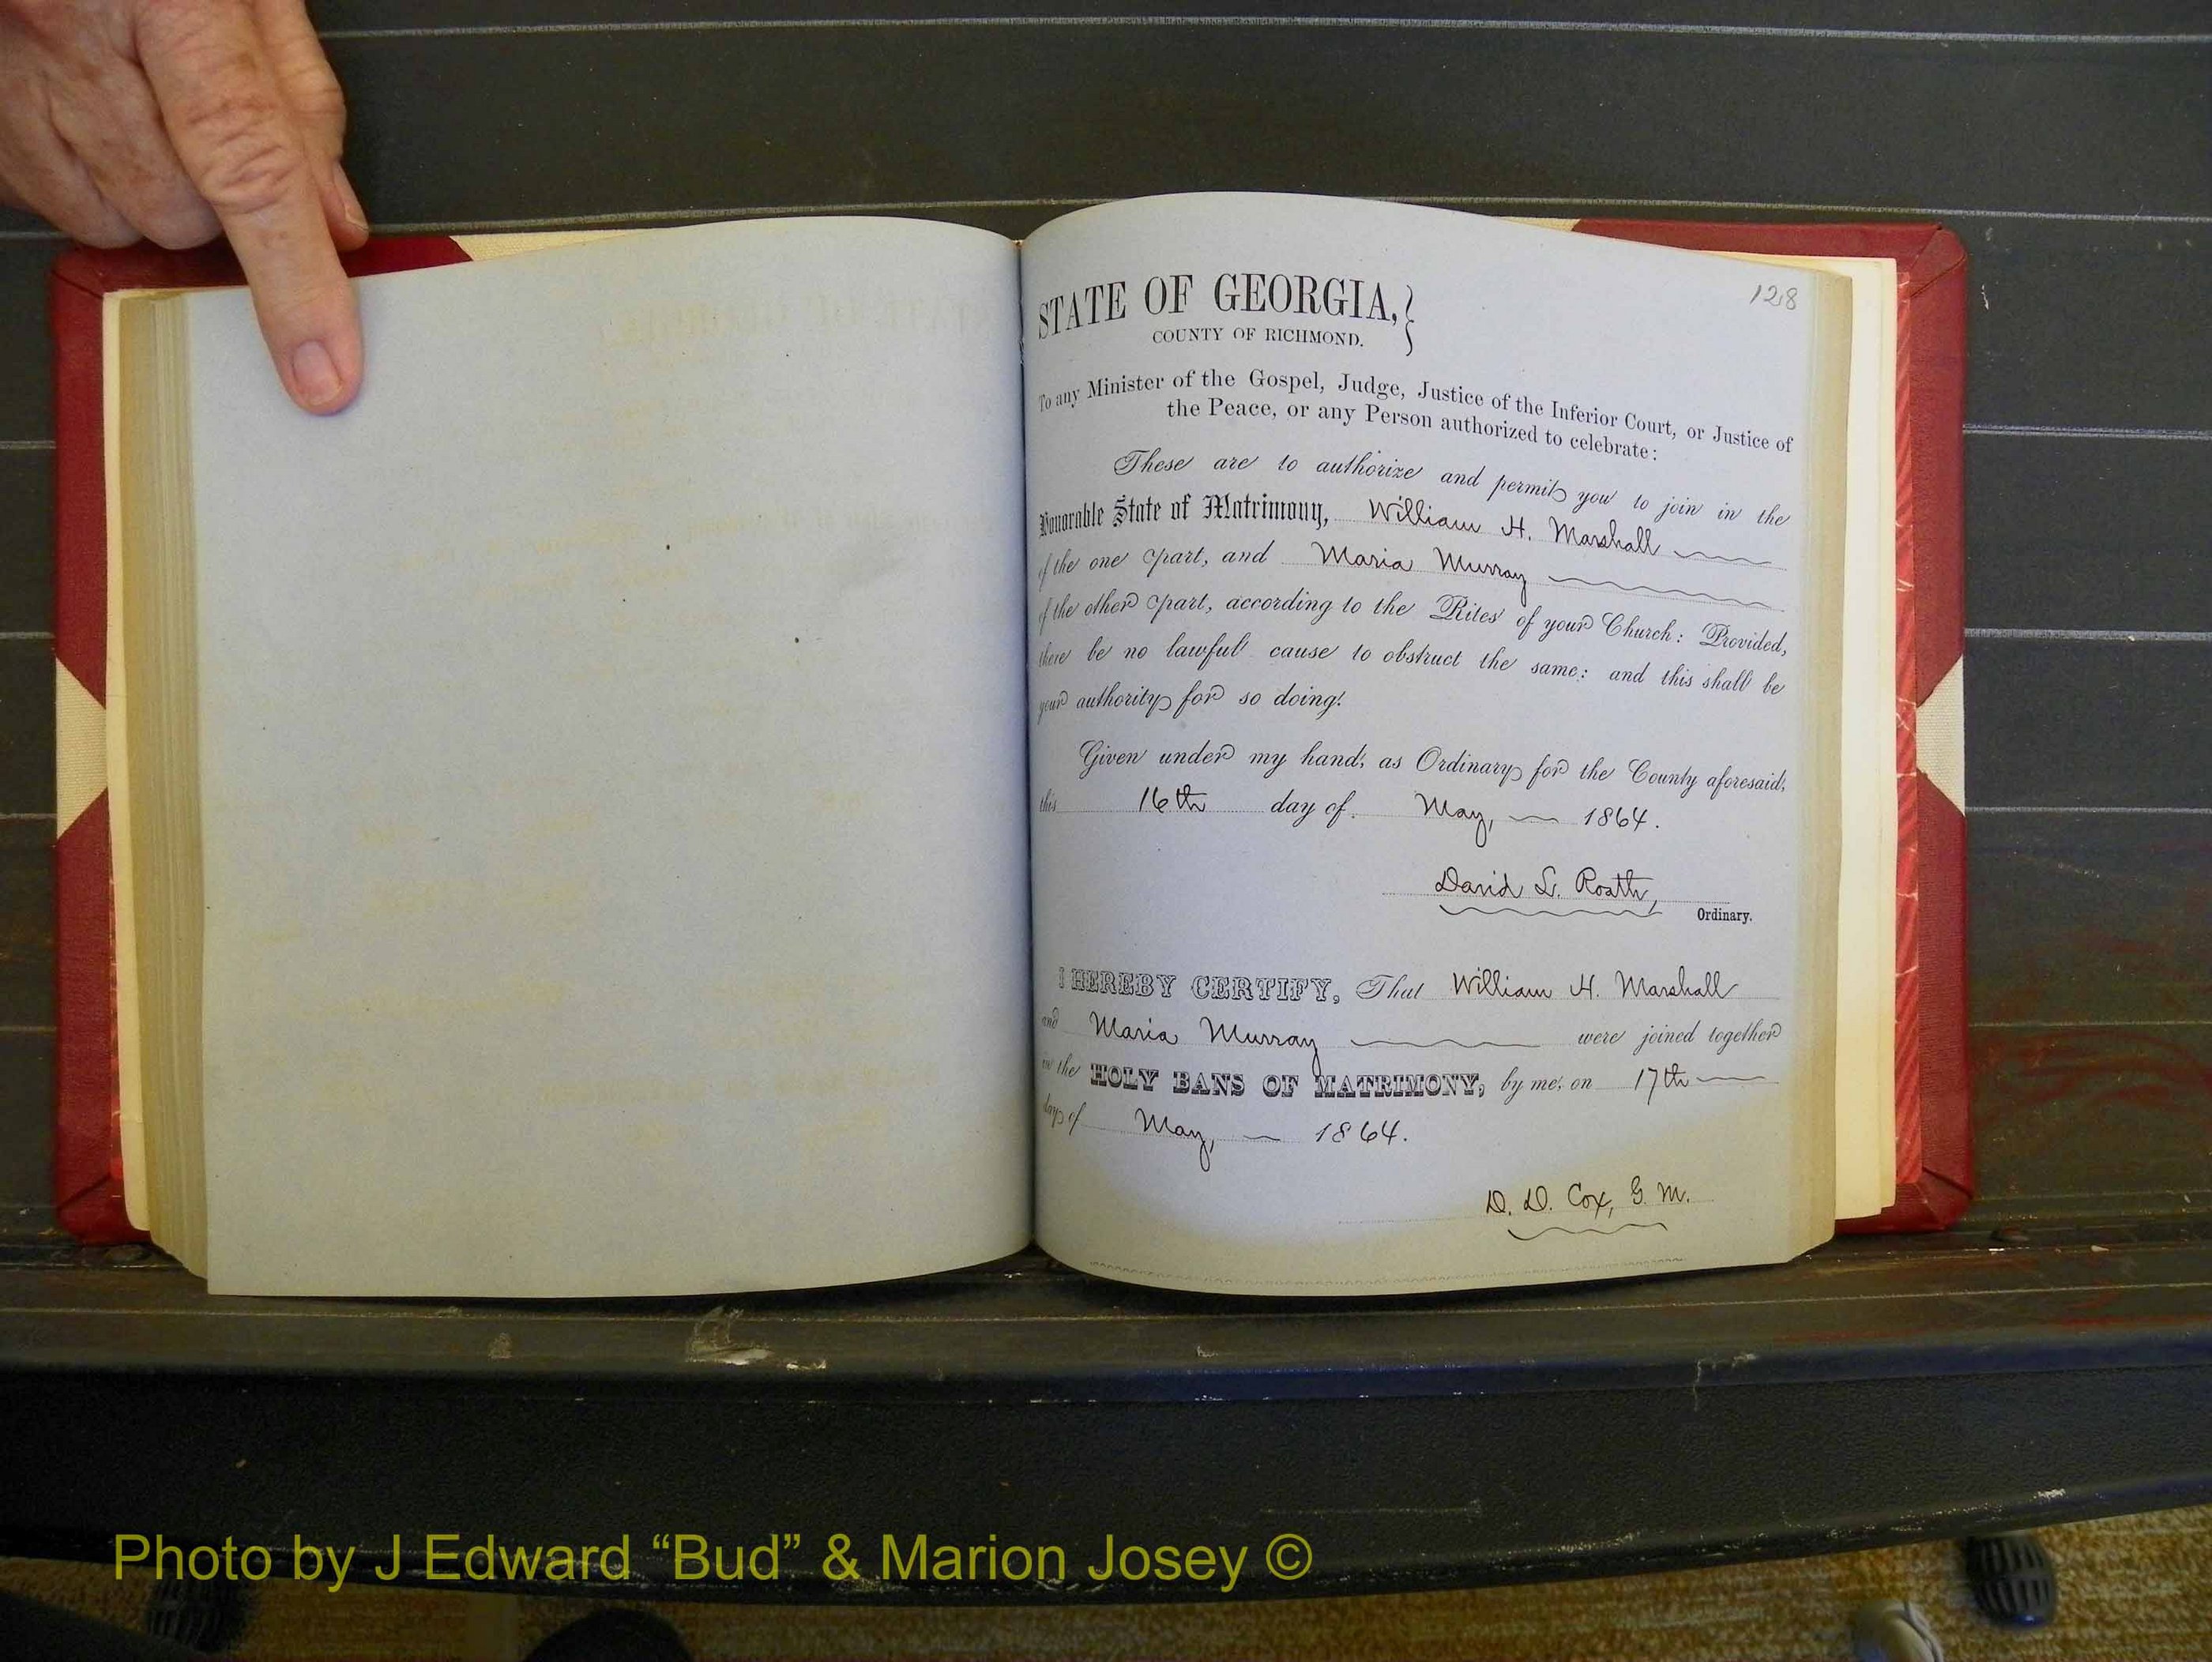 128
STATE OF GEORGIA,
COUNTY OF RICHMOND.
To any Minister of the Gospel, Judge, Justice of the Inferior Court, or Justice of
the Peace, or any Person authorized to celebrate:
These are to authorize and permit you to join in the
Honorable State of Matrimony, William H. Marshall
of the one part, and Maria Murray
of the other part, according to the Rites of your Church: Provided,
there be no lawful cause to obstruct the same: and this shall be
your authority for so doing.
Given under my hand, as Ordinary for the County aforesaid,
this 16th day of May, 1864.
David L. Roath,
Ordinary.
I HEREBY CERTIFY, That William H. Marshall
and Maria Murray were joined together
in the HOLY BANS OF MATRIMONY, by me, on 17th
day of May, 1864.
D. D. Cox, G. M.
Photo by J Edward “Bud” & Marion Josey ©